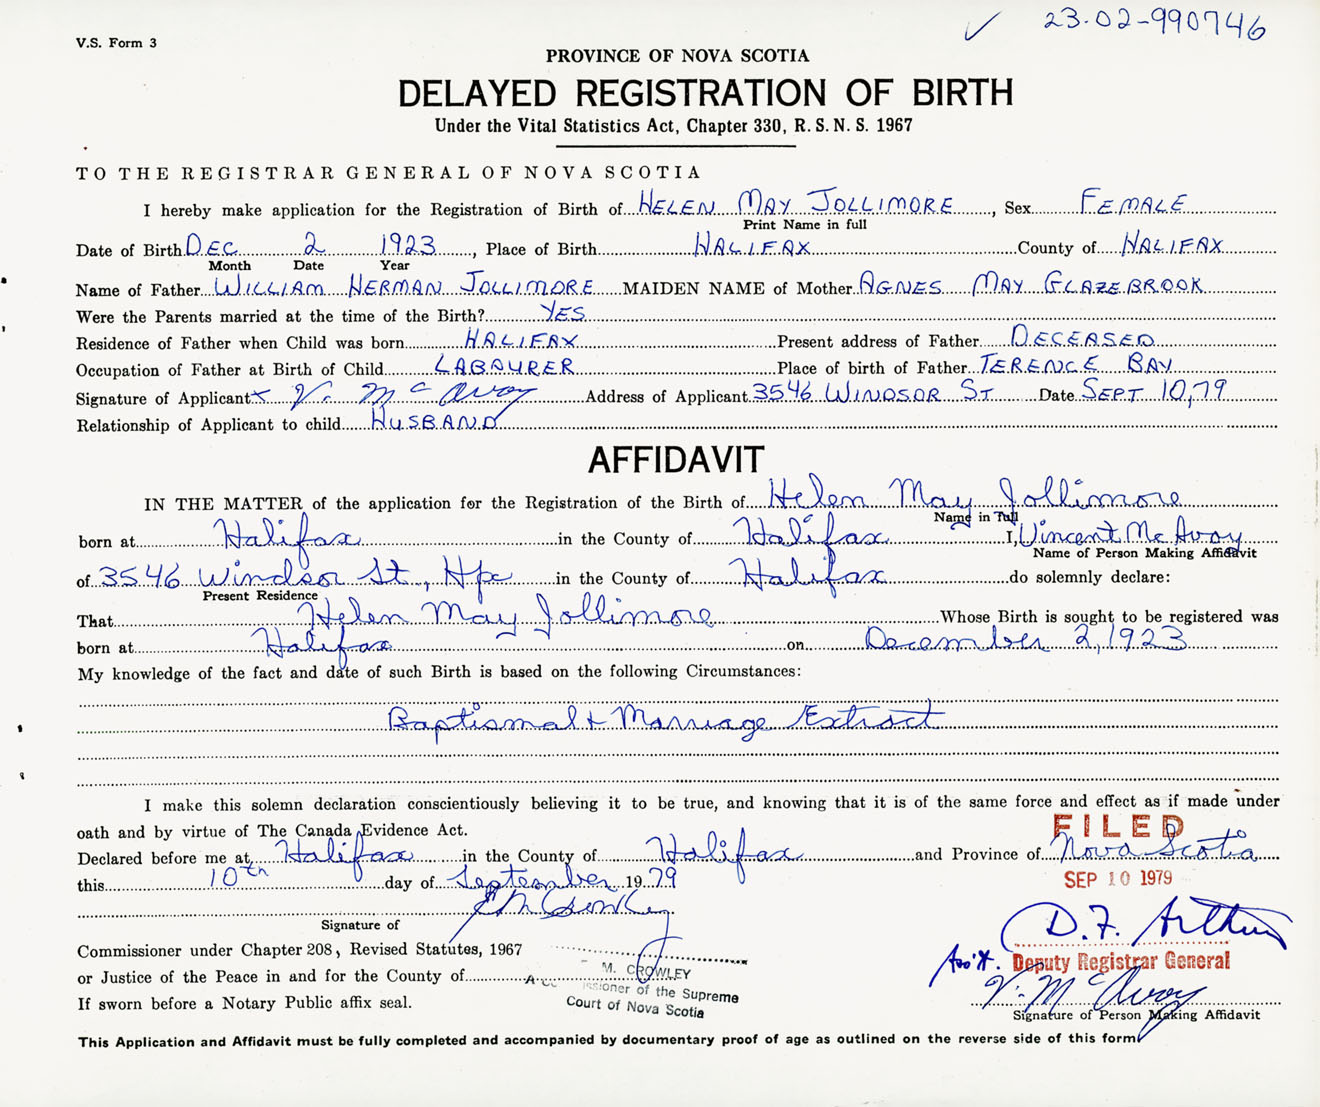 ✓ 23-02-990746
V.S. Form 3
PROVINCE OF NOVA SCOTIA
DELAYED REGISTRATION OF BIRTH
Under the Vital Statistics Act, Chapter 330, R. S. N. S. 1967
TO THE REGISTRAR GENERAL OF NOVA SCOTIA
I hereby make application for the Registration of Birth of HELEN MAY JOLLIMORE, Sex FEMALE
Print Name in full
Date of Birth DEC 2 1923, Place of Birth HALIFAX County of HALIFAX
Month Date Year
Name of Father WILLIAM HERMAN JOLLIMORE MAIDEN NAME of Mother AGNES MAY GLAZEBROOK
Were the Parents married at the time of the Birth? YES
Residence of Father when Child was born HALIFAX Present address of Father DECEASED
Occupation of Father at Birth of Child LABOURER Place of birth of Father TERENCE BAY
Signature of Applicant x V. McAvoy Address of Applicant 3546 WINDSOR ST Date SEPT 10, 79
Relationship of Applicant to child HUSBAND
AFFIDAVIT
IN THE MATTER of the application for the Registration of the Birth of Helen May Jollimore
Name in Full
born at Halifax in the County of Halifax I, Vincent McAvoy
Name of Person Making Affidavit
of 3546 Windsor St, Hfx in the County of Halifax do solemnly declare:
Present Residence
That Helen May Jollimore Whose Birth is sought to be registered was
born at Halifax on December 2, 1923
My knowledge of the fact and date of such Birth is based on the following Circumstances:
Baptismal + Marriage Extract
I make this solemn declaration conscientiously believing it to be true, and knowing that it is of the same force and effect as if made under
oath and by virtue of The Canada Evidence Act.
FILED
Declared before me at Halifax in the County of Halifax and Province of Nova Scotia
this 10th day of September 1979
SEP 10 1979
Signature of
D. F. Arthur
Commissioner under Chapter 208, Revised Statutes, 1967
Ass't. Deputy Registrar General
M. CROWLEY
or Justice of the Peace in and for the County of
V. McAvoy
of the Supreme
Court of Nova Scotia
If sworn before a Notary Public affix seal.
Signature of Person Making Affidavit
This Application and Affidavit must be fully completed and accompanied by documentary proof of age as outlined on the reverse side of this form.